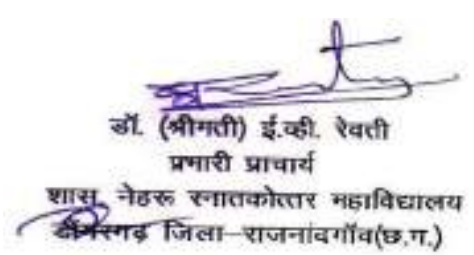 डॉ. (श्रीमती) ई.व्ही. रेवती
प्रभारी प्राचार्य
शास. नेहरू स्नातकोत्तर महाविद्यालय
डोंगरगढ़ जिला–राजनांदगॉव(छ.ग.)